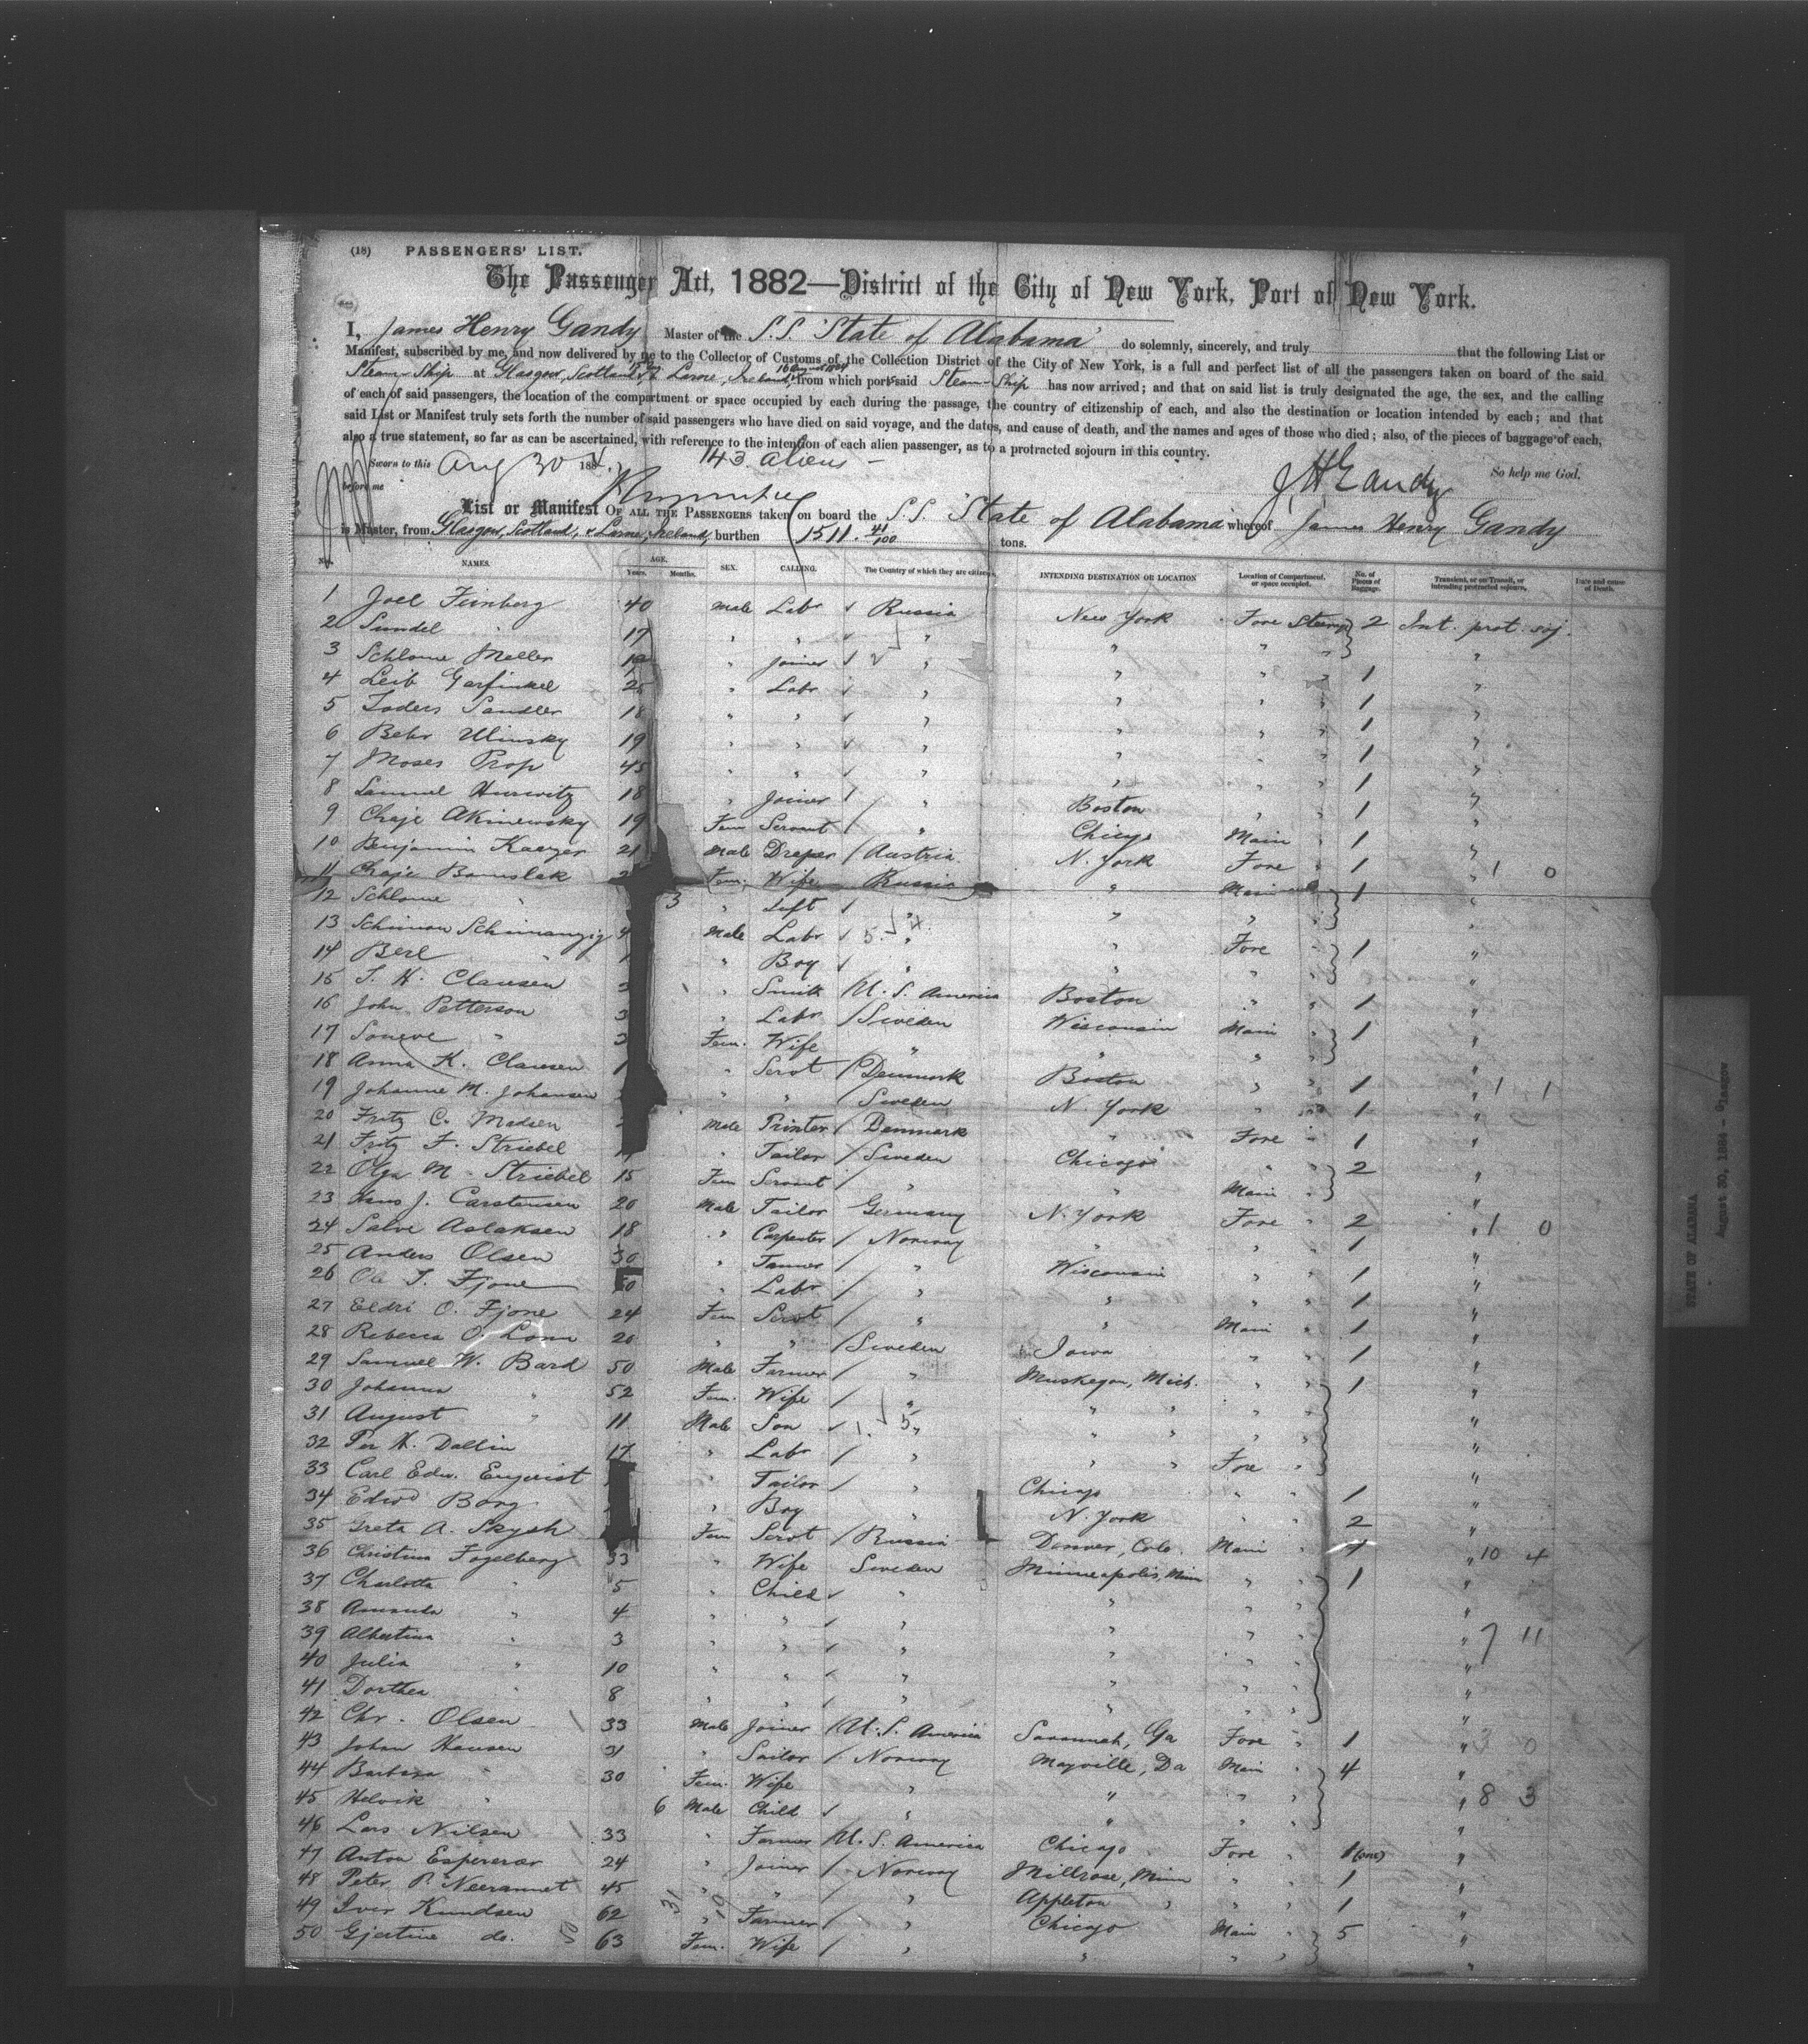 (18) PASSENGERS' LIST.
The Passenger Act, 1882—District of the City of New York, Port of New York.
I, James Henry Gandy Master of the S.S. "State of Alabama" do solemnly, sincerely, and truly that the following List or
Manifest, subscribed by me, and now delivered by me to the Collector of Customs of the Collection District of the City of New York, is a full and perfect list of all the passengers taken on board of the said
Steam Ship at Glasgow, Scotland, & Larne, Ireland, from which port said Steam Ship has now arrived; and that on said list is truly designated the age, the sex, and the calling
of each of said passengers, the location of the compartment or space occupied by each during the passage, the country of citizenship of each, and also the destination or location intended by each; and that
said List or Manifest truly sets forth the number of said passengers who have died on said voyage, and the dates, and cause of death, and the names and ages of those who died; also, of the pieces of baggage of each,
also a true statement, so far as can be ascertained, with reference to the intention of each alien passenger, as to a protracted sojourn in this country.
Sworn to this Aug 30 1884. 143 aliens - So help me God.
before me JH Gandy
List or Manifest OF ALL THE PASSENGERS taken on board the S.S. "State of Alabama" whereof James Henry Gandy
is Master, from Glasgow, Scotland, & Larne, Ireland, burthen 1511. 41/100 tons.
No. NAMES. AGE. Years. Months. SEX. CALLING. The Country of which they are citizens. INTENDING DESTINATION OR LOCATION Location of Compartment, or space occupied. No. of Pieces of Baggage. Transient, or on Transit, or intending protracted sojourn. Date and cause of Death.
1 Joel Feinberg 40 Male Labr Russia New York Fore Steerage 2 Int. prot. soj.
2 Sundel " 17 " " " " " " "
3 Schlome Meller 19 " Joiner " " " " 1 "
4 Leib Garfinkel 25 " Labr " " " " 1 "
5 Sandler 18 " " " " " " 1 "
6 Behr Ulinsky 19 " " " " " " 1 "
7 Moses Prop 45 " " " " " " 1 "
8 Samuel Hurwitz 18 " Joiner " Boston " " 1 "
9 Chaje Akinewsky 19 Fem Servant " Chicago Main " 1 "
10 Benjamin 21 Male Draper Austria N. York Fore " 1 " 1 0
11 Chaje Bomslak 2 Fem. Wife Russia " Main " 1 "
12 Schlome " 3 " Inft " " " " "
13 Schimon 4 Male Labr " " Fore " 1 "
14 Berl " 1 " Boy " " " " "
15 J. H. Clausen " Smith U. S. America Boston " " 1 "
16 John Petterson 3 " Labr Sweden Wisconsin Main " 1 "
17 " 3 Fem. Wife " " " " "
18 Anna K. Clausen 1 " Servt Denmark Boston " " 1 " 1 1
19 Johanne M. Johansen " " Sweden N. York " " 1 "
20 Fritz C. Madsen Male Printer Denmark " Fore " 1 "
21 Fritz F. Striebel " Tailor Sweden Chicago " " 2 "
22 Olga M. Striebel 15 Fem Servant " " Main " "
23 Hans J. Carstensen 20 Male Tailor Germany N. York Fore " 2 " 1 0
24 Salve Aslaksen 18 " Carpenter Norway " " " 1 "
25 Anders Olsen 30 " " Wisconsin " " 1 "
26 Ole T. Fjone 60 " Labr " " " " 1 "
27 Eldri O. Fjone 24 Fem Servt " " Main " 1 "
28 Rebecca O. Lonn 20 " " Sweden Iowa " " 1 "
29 Samuel W. Bard 50 Male Farmer " Muskegon, Mich. " " 1 "
30 Johanna " 52 Fem. Wife " " " " " "
31 August " 11 Male Son " " " " " "
32 Per H. Dallin 17 " Labr " " " Fore " "
33 Carl Edw. Enquist " Tailor " Chicago " " 1 "
34 Edwd Borg " Boy " N. York " " 2 "
35 Greta A. Skygh Fem Servt Russia Denver, Colo. Main " 1 " 10 4
36 Christina Fogelberg 33 " Wife Sweden Minneapolis, Minn " " 1 "
37 Charlotta " 5 " Child " " " " "
38 Amanda " 4 " " " " " " "
39 Albertina " 3 " " " " " " " 7 11
40 Julia " 10 " " " " " " "
41 Dorthea " 8 " " " " " " "
42 Chr. Olsen 33 Male Joiner U. S. America Savannah, Ga Fore " 1 " 3 0
43 Johan Hansen 31 " Sailor Norway Mayville, Da Main " 4 "
44 Barbara " 30 Fem. Wife " " " " " 8 3
45 " 6 Male Child " " " " "
46 Lars Nilsen 33 " Farmer U. S. America Chicago Fore " 1(one) "
47 Anton Espereroer 24 " Joiner Norway Millrose, Minn " " 1 "
48 Peter P. 45 " " " Appleton " " " 1 "
49 Iver Knudsen 62 " Farmer " Chicago Main " 5 "
50 Gjertine do. 63 Fem. Wife " " " " "
STATE OF ALABAMA
August 30, 1884 - Glasgow